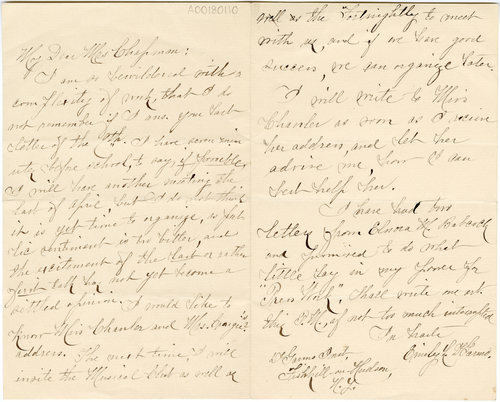 A00180110
My Dear Mrs Chapman:
I am so bewildered with a
complexity of work, that I do
not remember if I ans. your last
letter of the 9th. I have seven min
utes before school, to say, if possible,
I will have another meeting the
last of April but I do not think
it is yet time to organize, as pub
lic sentiment is too bitter, and
the excitement of the last or rather
first talk has not yet become a
settled opinion. I would like to
know Miss Chanler and Mrs.
address. The next time, I will
invite the Musical Club as well as
well as the "Fortnightly" to meet
with us, and if we have good
success, we can organize later.
I will write to Miss
Chanler as soon as I receive
her address, and let her
advise me how I can
best help her.
I have had two
letters from Elnora M. Babcock
and promised to do what
little lay in my power for
"Press Work". Shall write me oft
this P.M. if not too much interrupted
In haste
Emily C. DeGarmo.
DeGarmo Inst.,
Fishkill-on-Hudson,
N.Y.